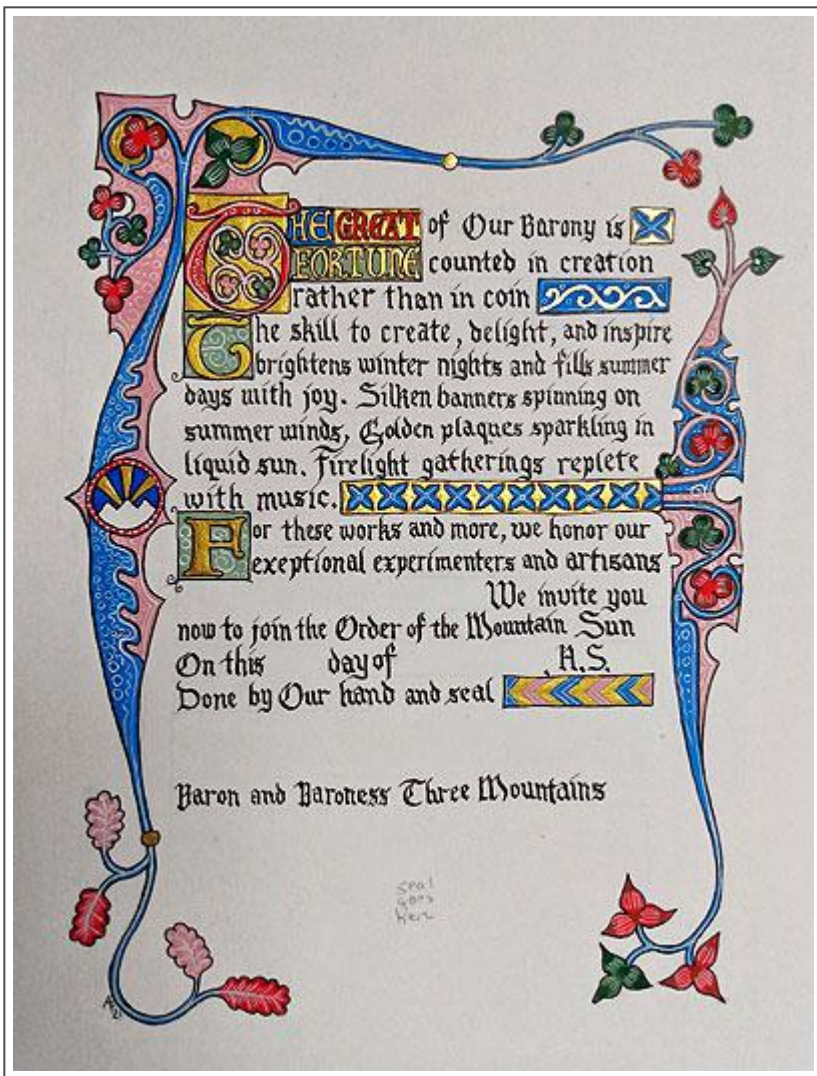 THE GREAT of Our Barony is
FORTUNE counted in creation
rather than in coin
The skill to create, delight, and inspire
brightens winter nights and fills summer
days with joy. Silken banners spinning on
summer winds, Golden plaques sparkling in
liquid sun. Firelight gatherings replete
with music.
For these works and more, we honor our
exeptional experimenters and artisans
We invite you
now to join the Order of the Mountain Sun
On this day of , A.S.
Done by Our hand and seal
Baron and Baroness Three Mountains
seal
goes
here